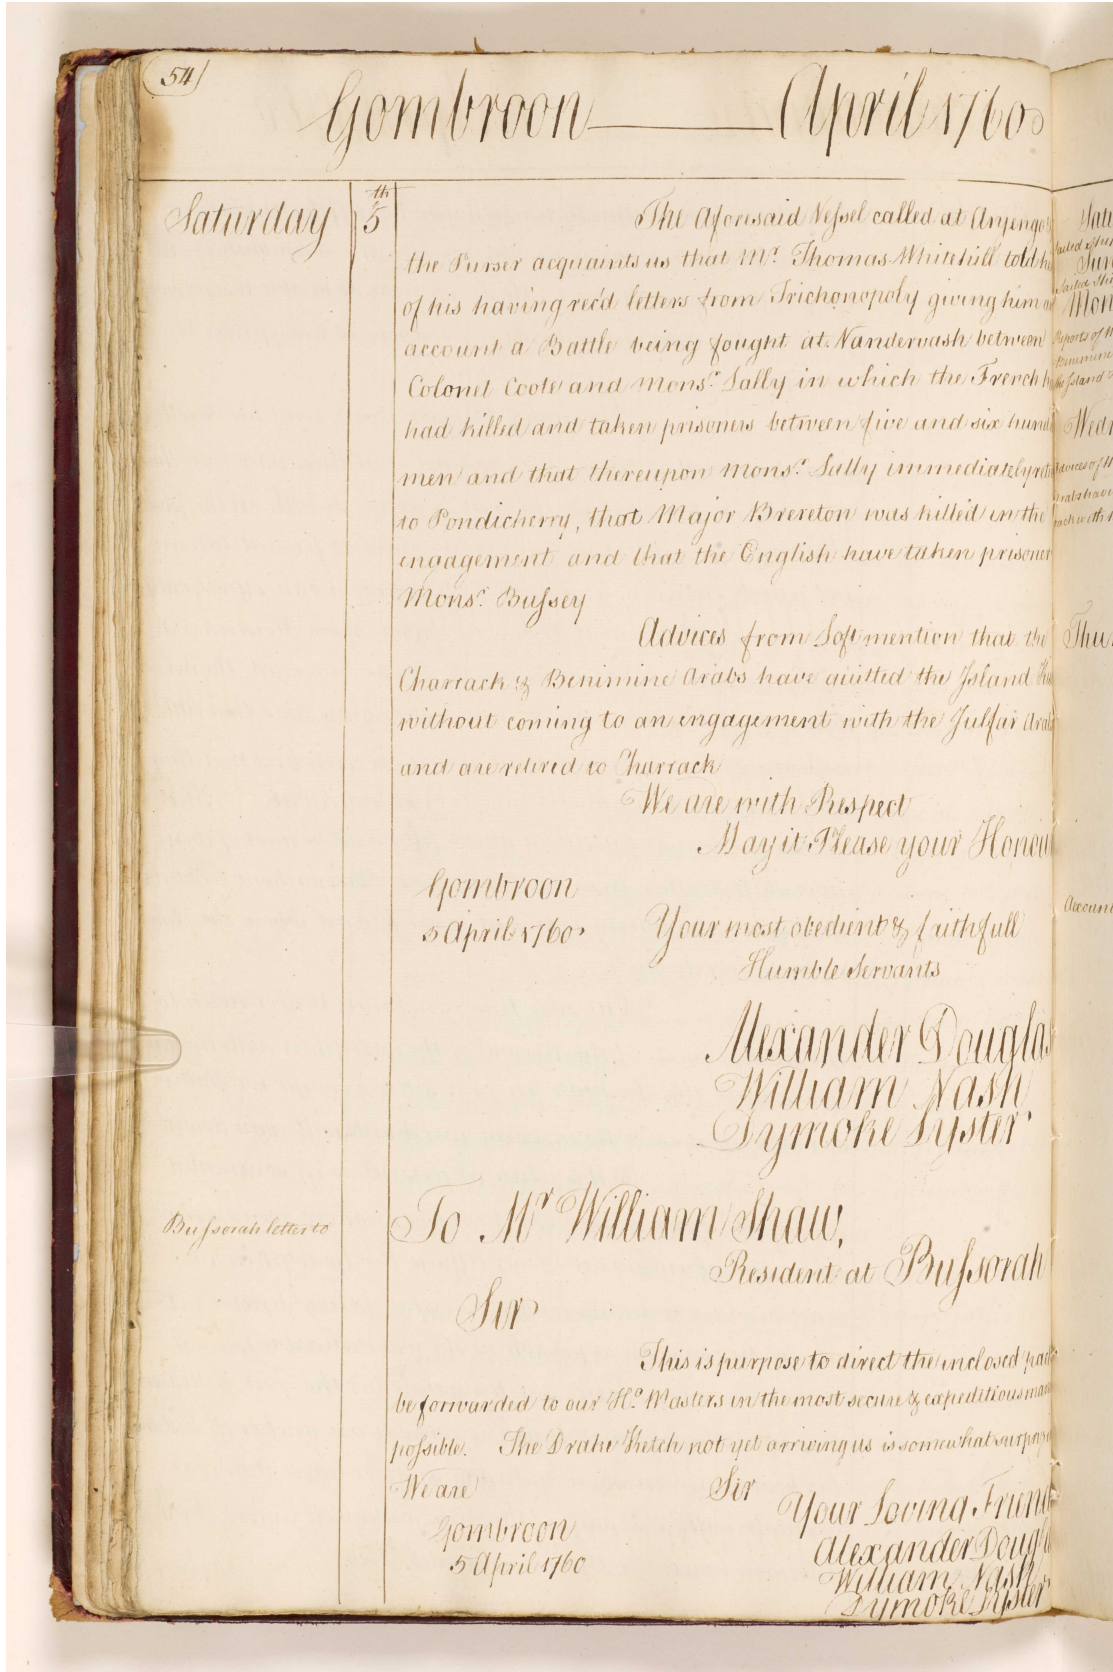 54
Gombroon April 1760
Saturday 5th The Aforesaid Vessel called at Anjengo
the Purser acquaints us that Mr. Thomas Whitehill told h
of his having rec'd letters from Trichonopoly giving him a
account a Battle being fought at Vandervash between
Colonel Coote and Monsr. Lally in which the French h
had killed and taken prisoners between five and six hund
men and that thereupon Monsr. Lally immediately ret
to Pondicherry, that Major Brereton was killed in the
engagement and that the English have taken prisoner
Monsr. Bussey
Advices from Loft mention that the
Charrack & Benimine Arabs have quitted the Island
without coming to an engagement with the Julfar Arab
and are retired to Charrack
We are with Respect
May it Please your Honou
Gombroon
5 April 1760 Your most obedient & faithfull
Humble Servants
Alexander Douglas
William Nash
Dymoke Lyster
Bussorah letter to To Mr William Shaw,
President at Bussorah
Sir
This is purpose to direct the inclosed pack
be forwarded to our Ho. Masters in the most secure & expeditious man
possible. The Drake Ketch not yet arriving us is somewhat surpriz
We are Sir
Your Loving Friend
Gombroon
Alexander Dougla
5 April 1760
William Nash
Dymoke Lyster
Sat
Sun
Mon
Reports of
Benimine
the Island
Wed
Advices of
Arabs have
Thu
Account